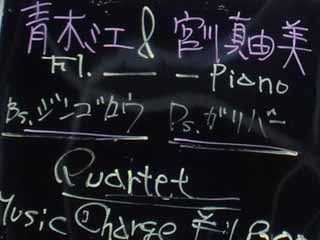 青木江 & 宮川真由美
Fl. Piano
Bs. ジンゴロウ Ds. ガリバー
Quartet
Music Charge ¥1,800